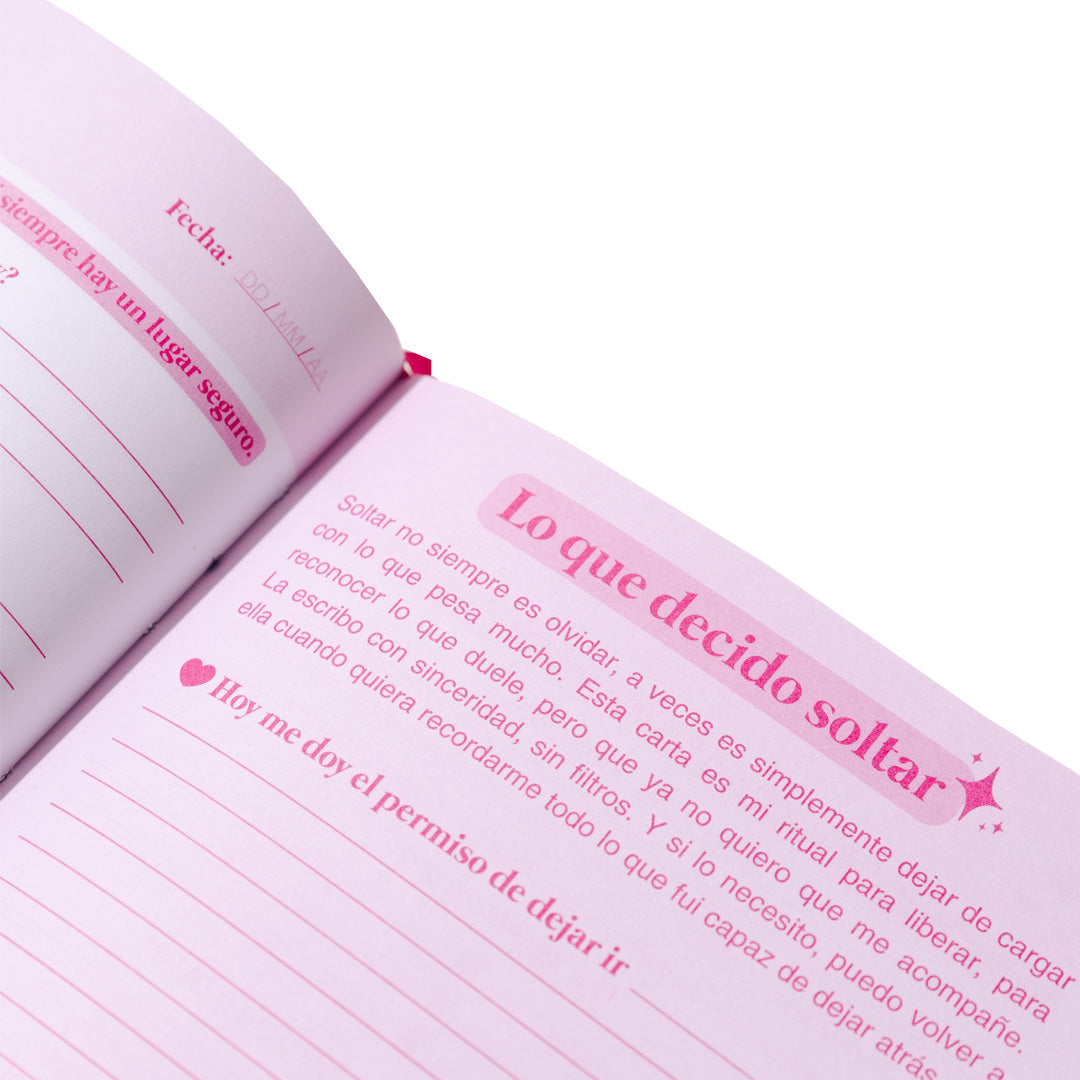 Fecha: DD/MM/AA
siempre hay un lugar seguro.
Lo que decido soltar
Soltar no siempre es olvidar, a veces es simplemente dejar de cargar
con lo que pesa mucho. Esta carta es mi ritual para liberar, para
reconocer lo que duele, pero que ya no quiero que me acompañe.
La escribo con sinceridad, sin filtros. Y si lo necesito, puedo volver a
ella cuando quiera recordarme todo lo que fui capaz de dejar atrás
Hoy me doy el permiso de dejar ir